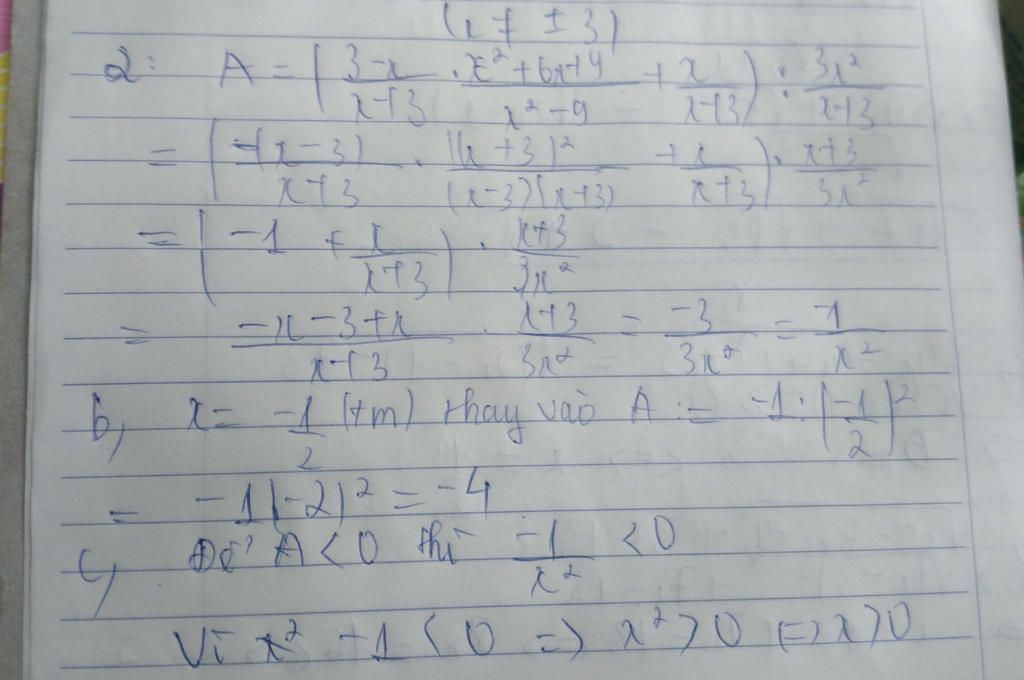 (x ≠ ± 3)
2: A = ( 3-x/x+3 . x²+6x+9/x²-9 + x/x+3 ) : 3x²/x+3
= ( -(x-3)/x+3 . (x+3)²/(x-3)(x+3) + x/x+3 ) . x+3/3x²
= ( -1 + x/x+3 ) . x+3/3x²
= -x-3+x/x+3 . x+3/3x² = -3/3x² = -1/x²
b, x = -1/2 (tm) thay vào A := -1 : (-1/2)²
= -1(-2)² = -4
c, Để A < 0 thì -1/x² < 0
Vì -1 < 0 => x² > 0 (=> x > 0